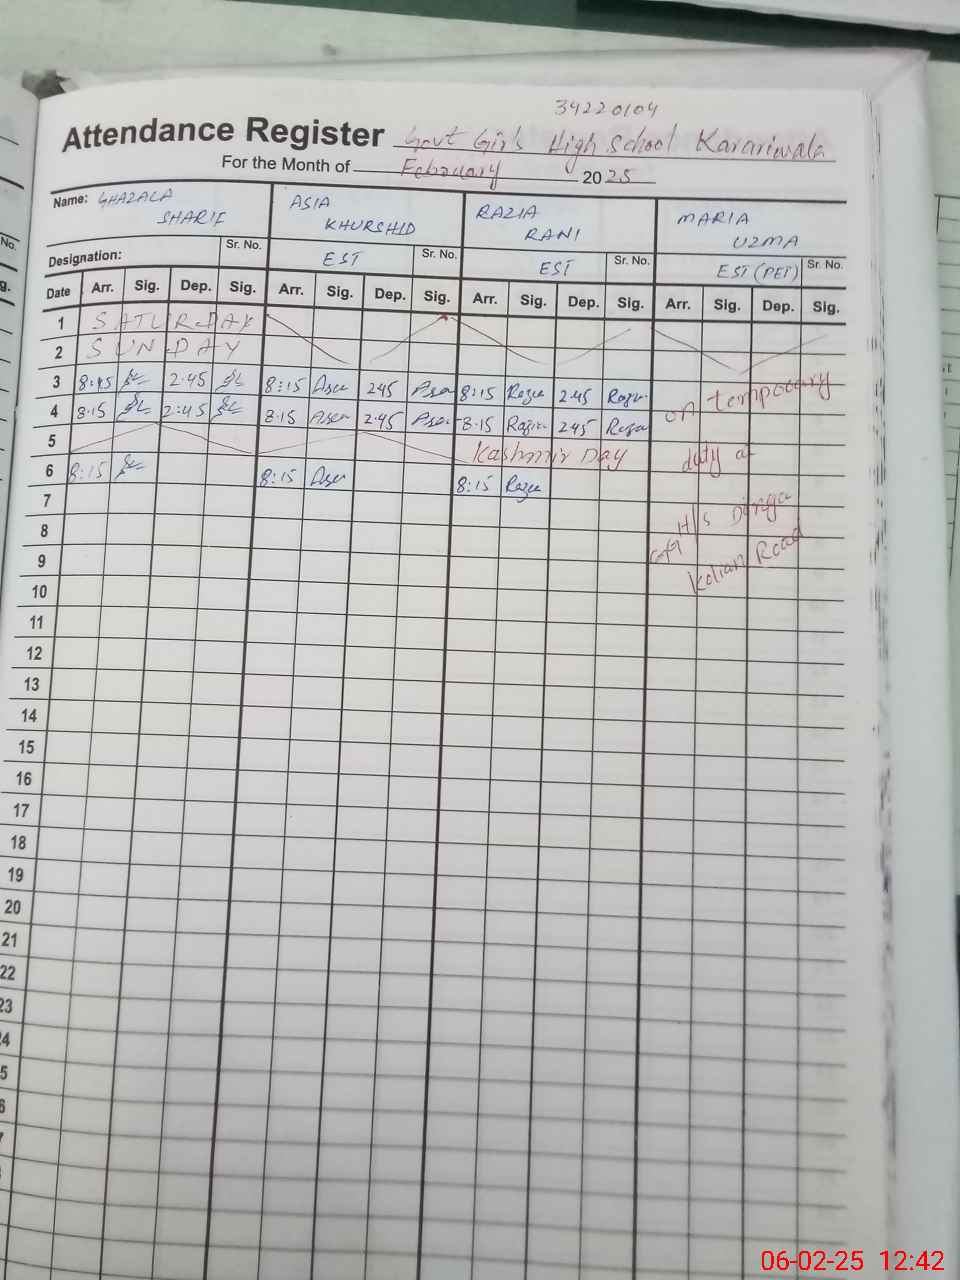 34220104
Attendance Register Govt Girls High School Karariwala
For the Month of February 2025
Name: GHAZALA SHARIF ASIA KHURSHID RAZIA RANI MARIA UZMA
Designation: Sr. No. EST Sr. No. EST Sr. No. EST (PET) Sr. No.
Date Arr. Sig. Dep. Sig. Arr. Sig. Dep. Sig. Arr. Sig. Dep. Sig. Arr. Sig. Dep. Sig.
1 SATURDAY
2 SUNDAY
3 8:15 2.45 8:15 245 8:15 2.45
4 8.15 2:45 8:15 2.45 8.15 245
on temporary
5 Kashmir Day
duty at
6 8:15 8:15 8:15
7
GGH/S Dinga
8
Kolian Road
9
10
11
12
13
14
15
16
17
18
19
20
21
22
23
24
06-02-25 12:42